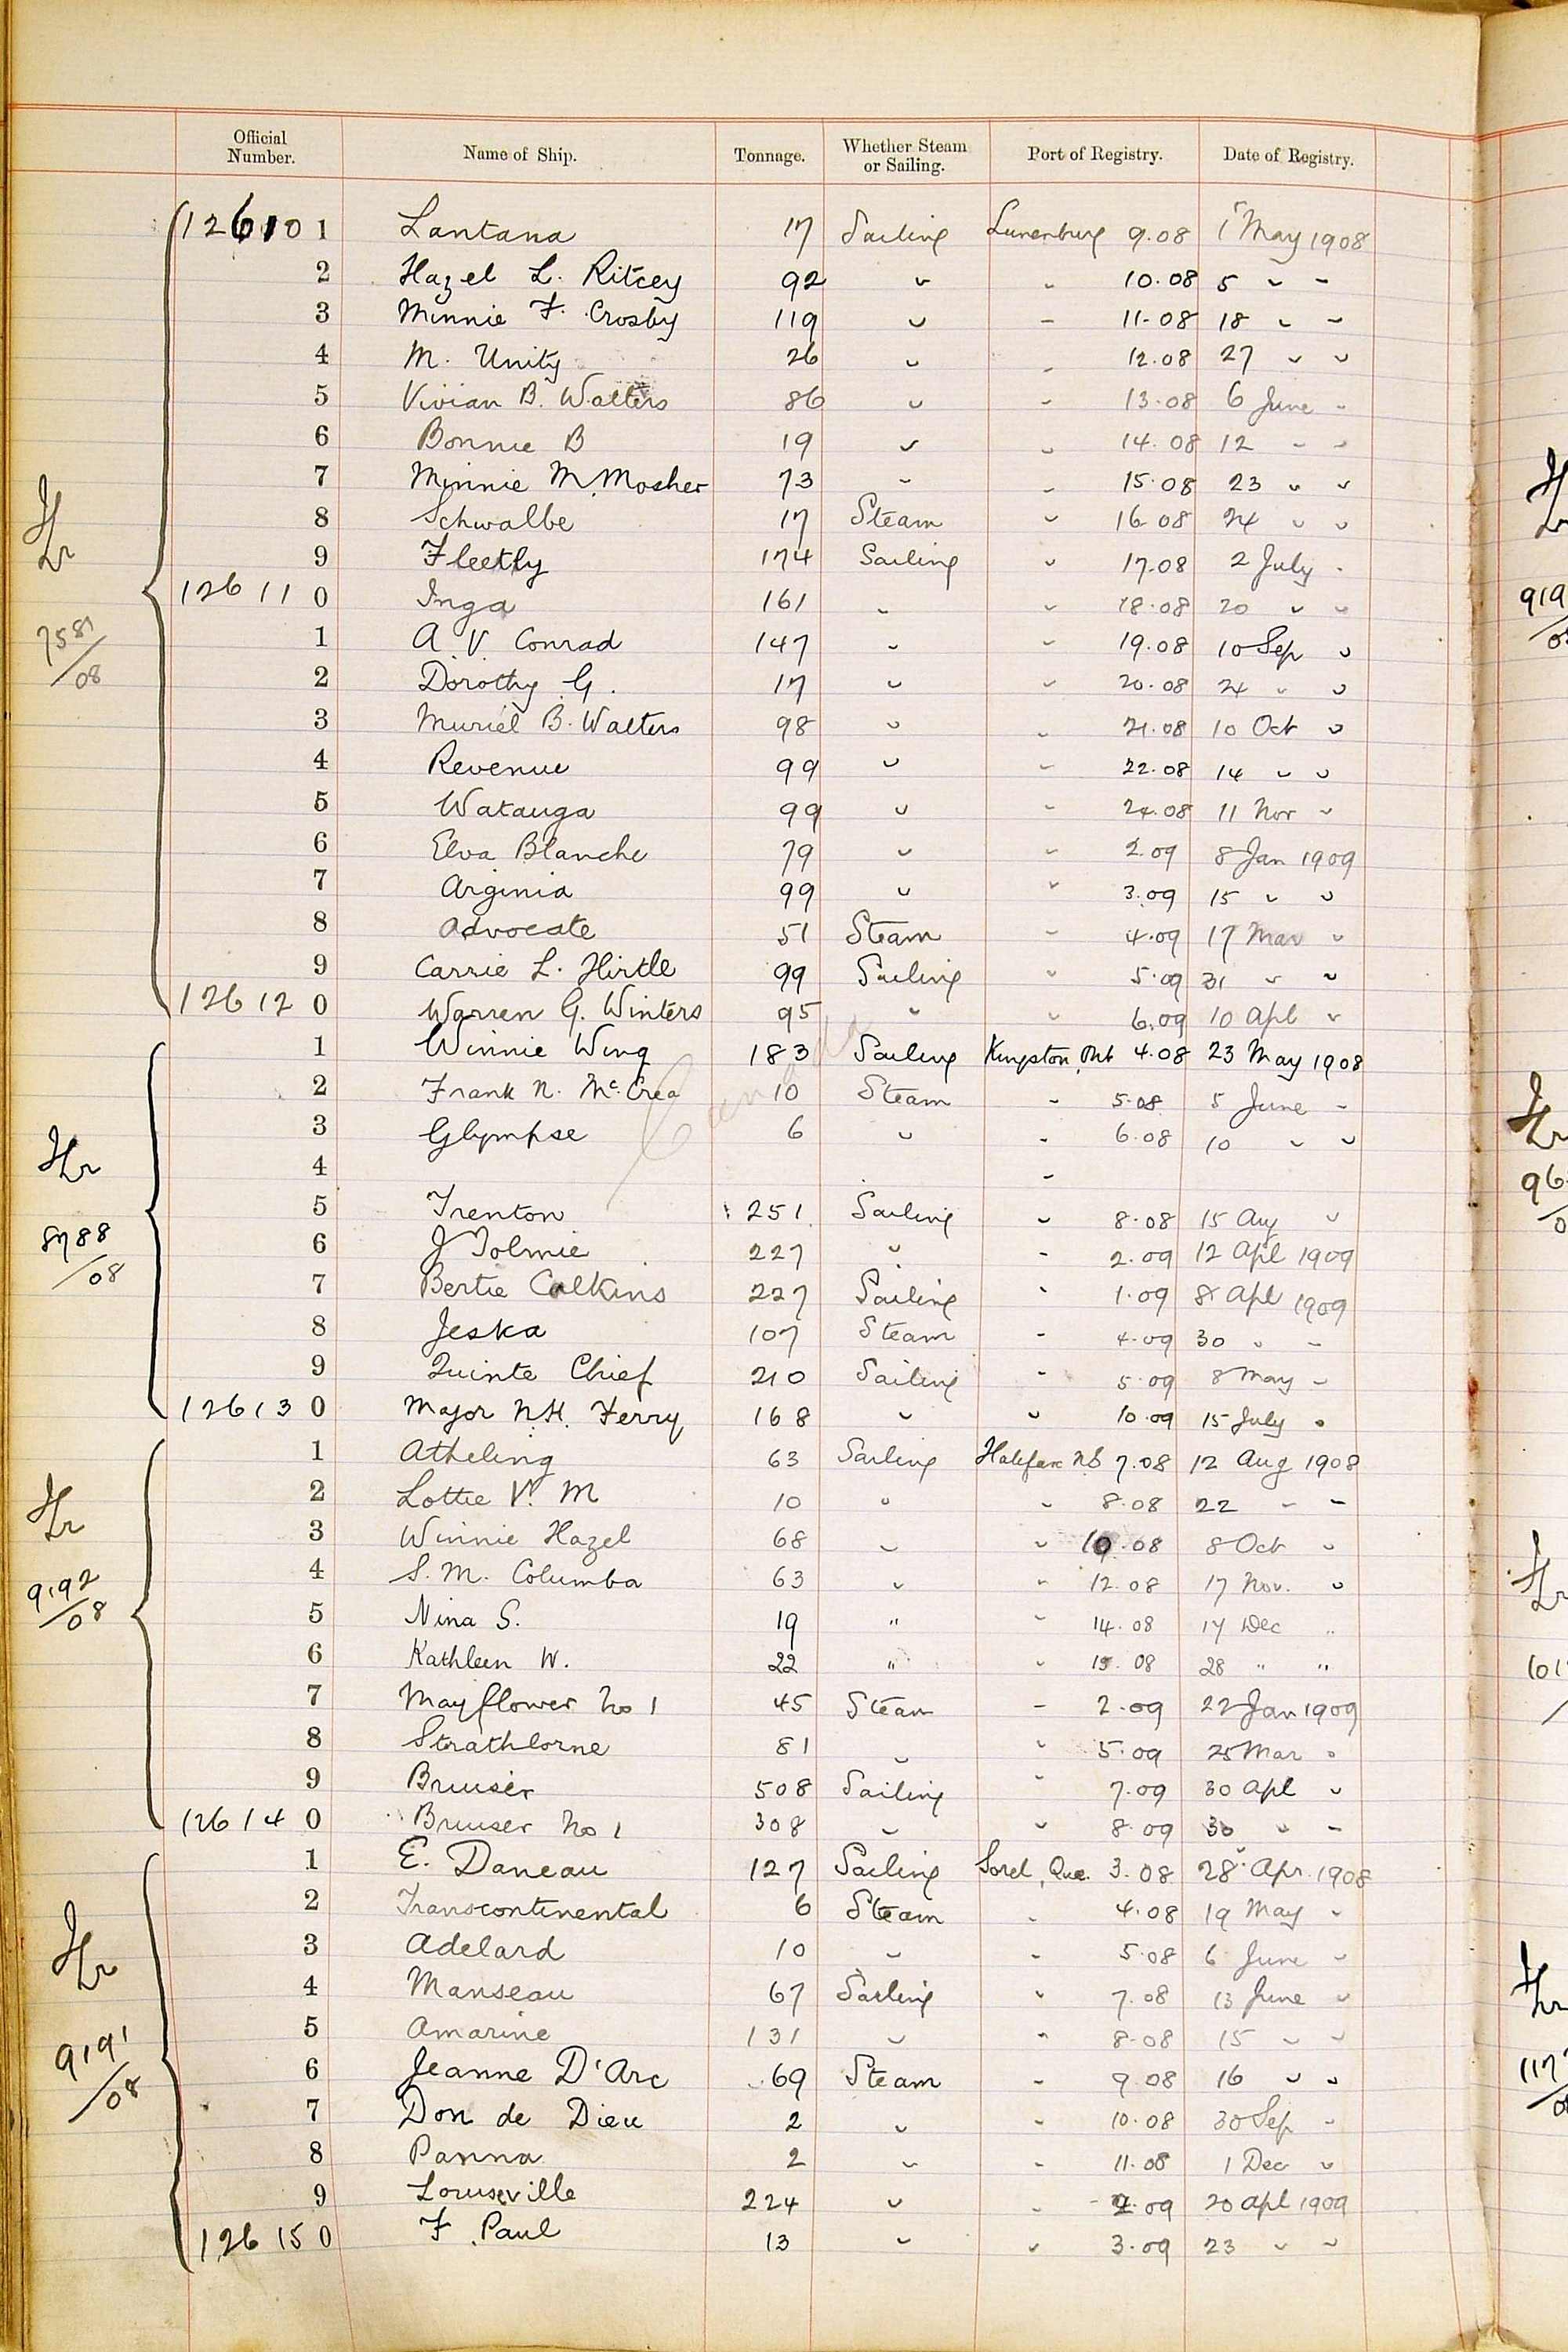 Official Number. Name of Ship. Tonnage. Whether Steam or Sailing. Port of Registry. Date of Registry.
126101 Lantana 17 Sailing Lunenburg 9.08 1 May 1908
2 Hazel L. Ritcey 92 " " 10.08 5 " "
3 Minnie F. Crosby 119 " " 11.08 18 " "
4 M. Unity 26 " " 12.08 27 " "
5 Vivian B. Walters 86 " " 13.08 6 June "
6 Bonnie B 19 " " 14.08 12 " "
7 Minnie M. Mosher 73 " " 15.08 23 " "
8 Schwalbe 17 Steam " 16.08 24 " "
9 Fleetly 174 Sailing " 17.08 2 July "
126110 Inga 161 " " 18.08 20 " "
7581/08
1 A. V. Conrad 147 " " 19.08 10 Sep "
2 Dorothy G. 17 " " 20.08 24 " "
3 Muriel B. Walters 98 " " 21.08 10 Oct "
4 Revenue 99 " " 22.08 14 " "
5 Watauga 99 " " 24.08 11 Nov "
6 Elva Blanche 79 " " 2.09 8 Jan 1909
7 Arginia 99 " " 3.09 15 " "
8 Advocate 51 Steam " 4.09 17 Mar "
9 Carrie L. Hirtle 99 Sailing " 5.09 31 " "
126120 Warren G. Winters 95 " " 6.09 10 Apl "
1 Winnie Wing 183 Sailing Kingston, Ont 4.08 23 May 1908
2 Frank N. McCrea 10 Steam " 5.08 5 June "
3 Glympse 6 " " 6.08 10 " "
4 "
5 Trenton 251 Sailing " 8.08 15 Aug "
8788/08
6 J Tolmie 227 " " 2.09 12 Apl 1909
7 Bertie Calkins 227 Sailing " 1.09 8 Apl 1909
8 Jeska 107 Steam " 4.09 30 " "
9 Quinte Chief 210 Sailing " 5.09 8 May "
126130 Major N.H. Ferry 168 " " 10.09 15 July "
1 Atheling 63 Sailing Halifax NS 7.08 12 Aug 1908
2 Lottie V. M 10 " " 8.08 22 " "
3 Winnie Hazel 68 " " 10.08 8 Oct "
4 S. M. Columba 63 " " 12.08 17 Nov. "
9192/08
5 Nina S. 19 " " 14.08 17 Dec "
6 Kathleen W. 22 " " 15.08 28 " "
7 Mayflower No 1 45 Steam " 2.09 22 Jan 1909
8 Strathlorne 81 " " 5.09 25 Mar "
9 Bruiser 508 Sailing " 7.09 30 Apl "
126140 Bruiser No 1 308 " " 8.09 30 " "
1 E. Daneau 127 Sailing Sorel, Que. 3.08 28 Apr. 1908
2 Transcontinental 6 Steam " 4.08 19 May "
3 Adelard 10 " " 5.08 6 June "
4 Manseau 67 Sailing " 7.08 13 June "
5 Amarine 131 " " 8.08 15 " "
9191/08
6 Jeanne D'Arc 69 Steam " 9.08 16 " "
7 Don de Dieu 2 " " 10.08 30 Sep "
8 Panna 2 " " 11.08 1 Dec "
9 Louiseville 224 " " 2.09 20 Apl 1909
126150 F. Paul 13 " " 3.09 23 " "